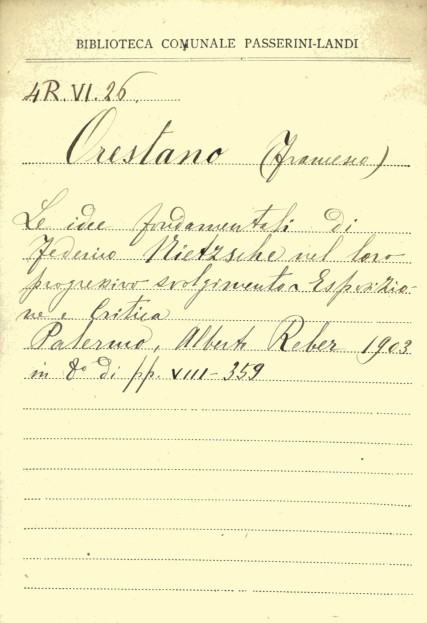 BIBLIOTECA COMUNALE PASSERINI-LANDI
4R.VI.26.
Orestano (Francesco)
Le idee fondamentali di
Federico Nietzsche nel loro
progressivo svolgimento. Esposizio-
ne e Critica
Palermo, Alberto Reber 1903
in 8° di pp. VIII-359